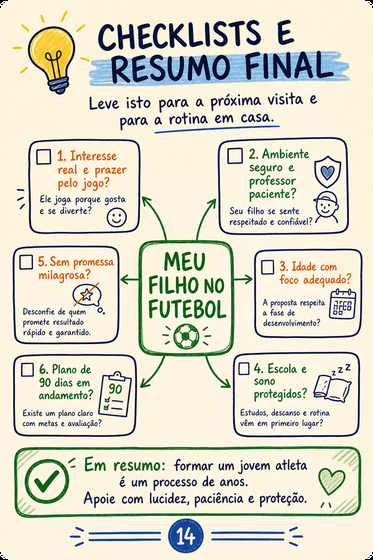 CHECKLISTS E
RESUMO FINAL
Leve isto para a próxima visita e
para a rotina em casa.
1. Interesse
real e prazer
pelo jogo?
Ele joga porque gosta
e se diverte?
2. Ambiente
seguro e
professor
paciente?
Seu filho se sente
respeitado e confiável?
5. Sem promessa
milagrosa?
Desconfie de quem
promete resultado
rápido e garantido.
MEU
FILHO NO
FUTEBOL
3. Idade com
foco adequado?
A proposta respeita
a fase de
desenvolvimento?
6. Plano de
90 dias em
andamento?
90
Existe um plano claro
com metas e avaliação?
4. Escola e
sono
protegidos?
z z z
Estudos, descanso e rotina
vêm em primeiro lugar?
Em resumo: formar um jovem atleta
é um processo de anos.
Apoie com lucidez, paciência e proteção.
14